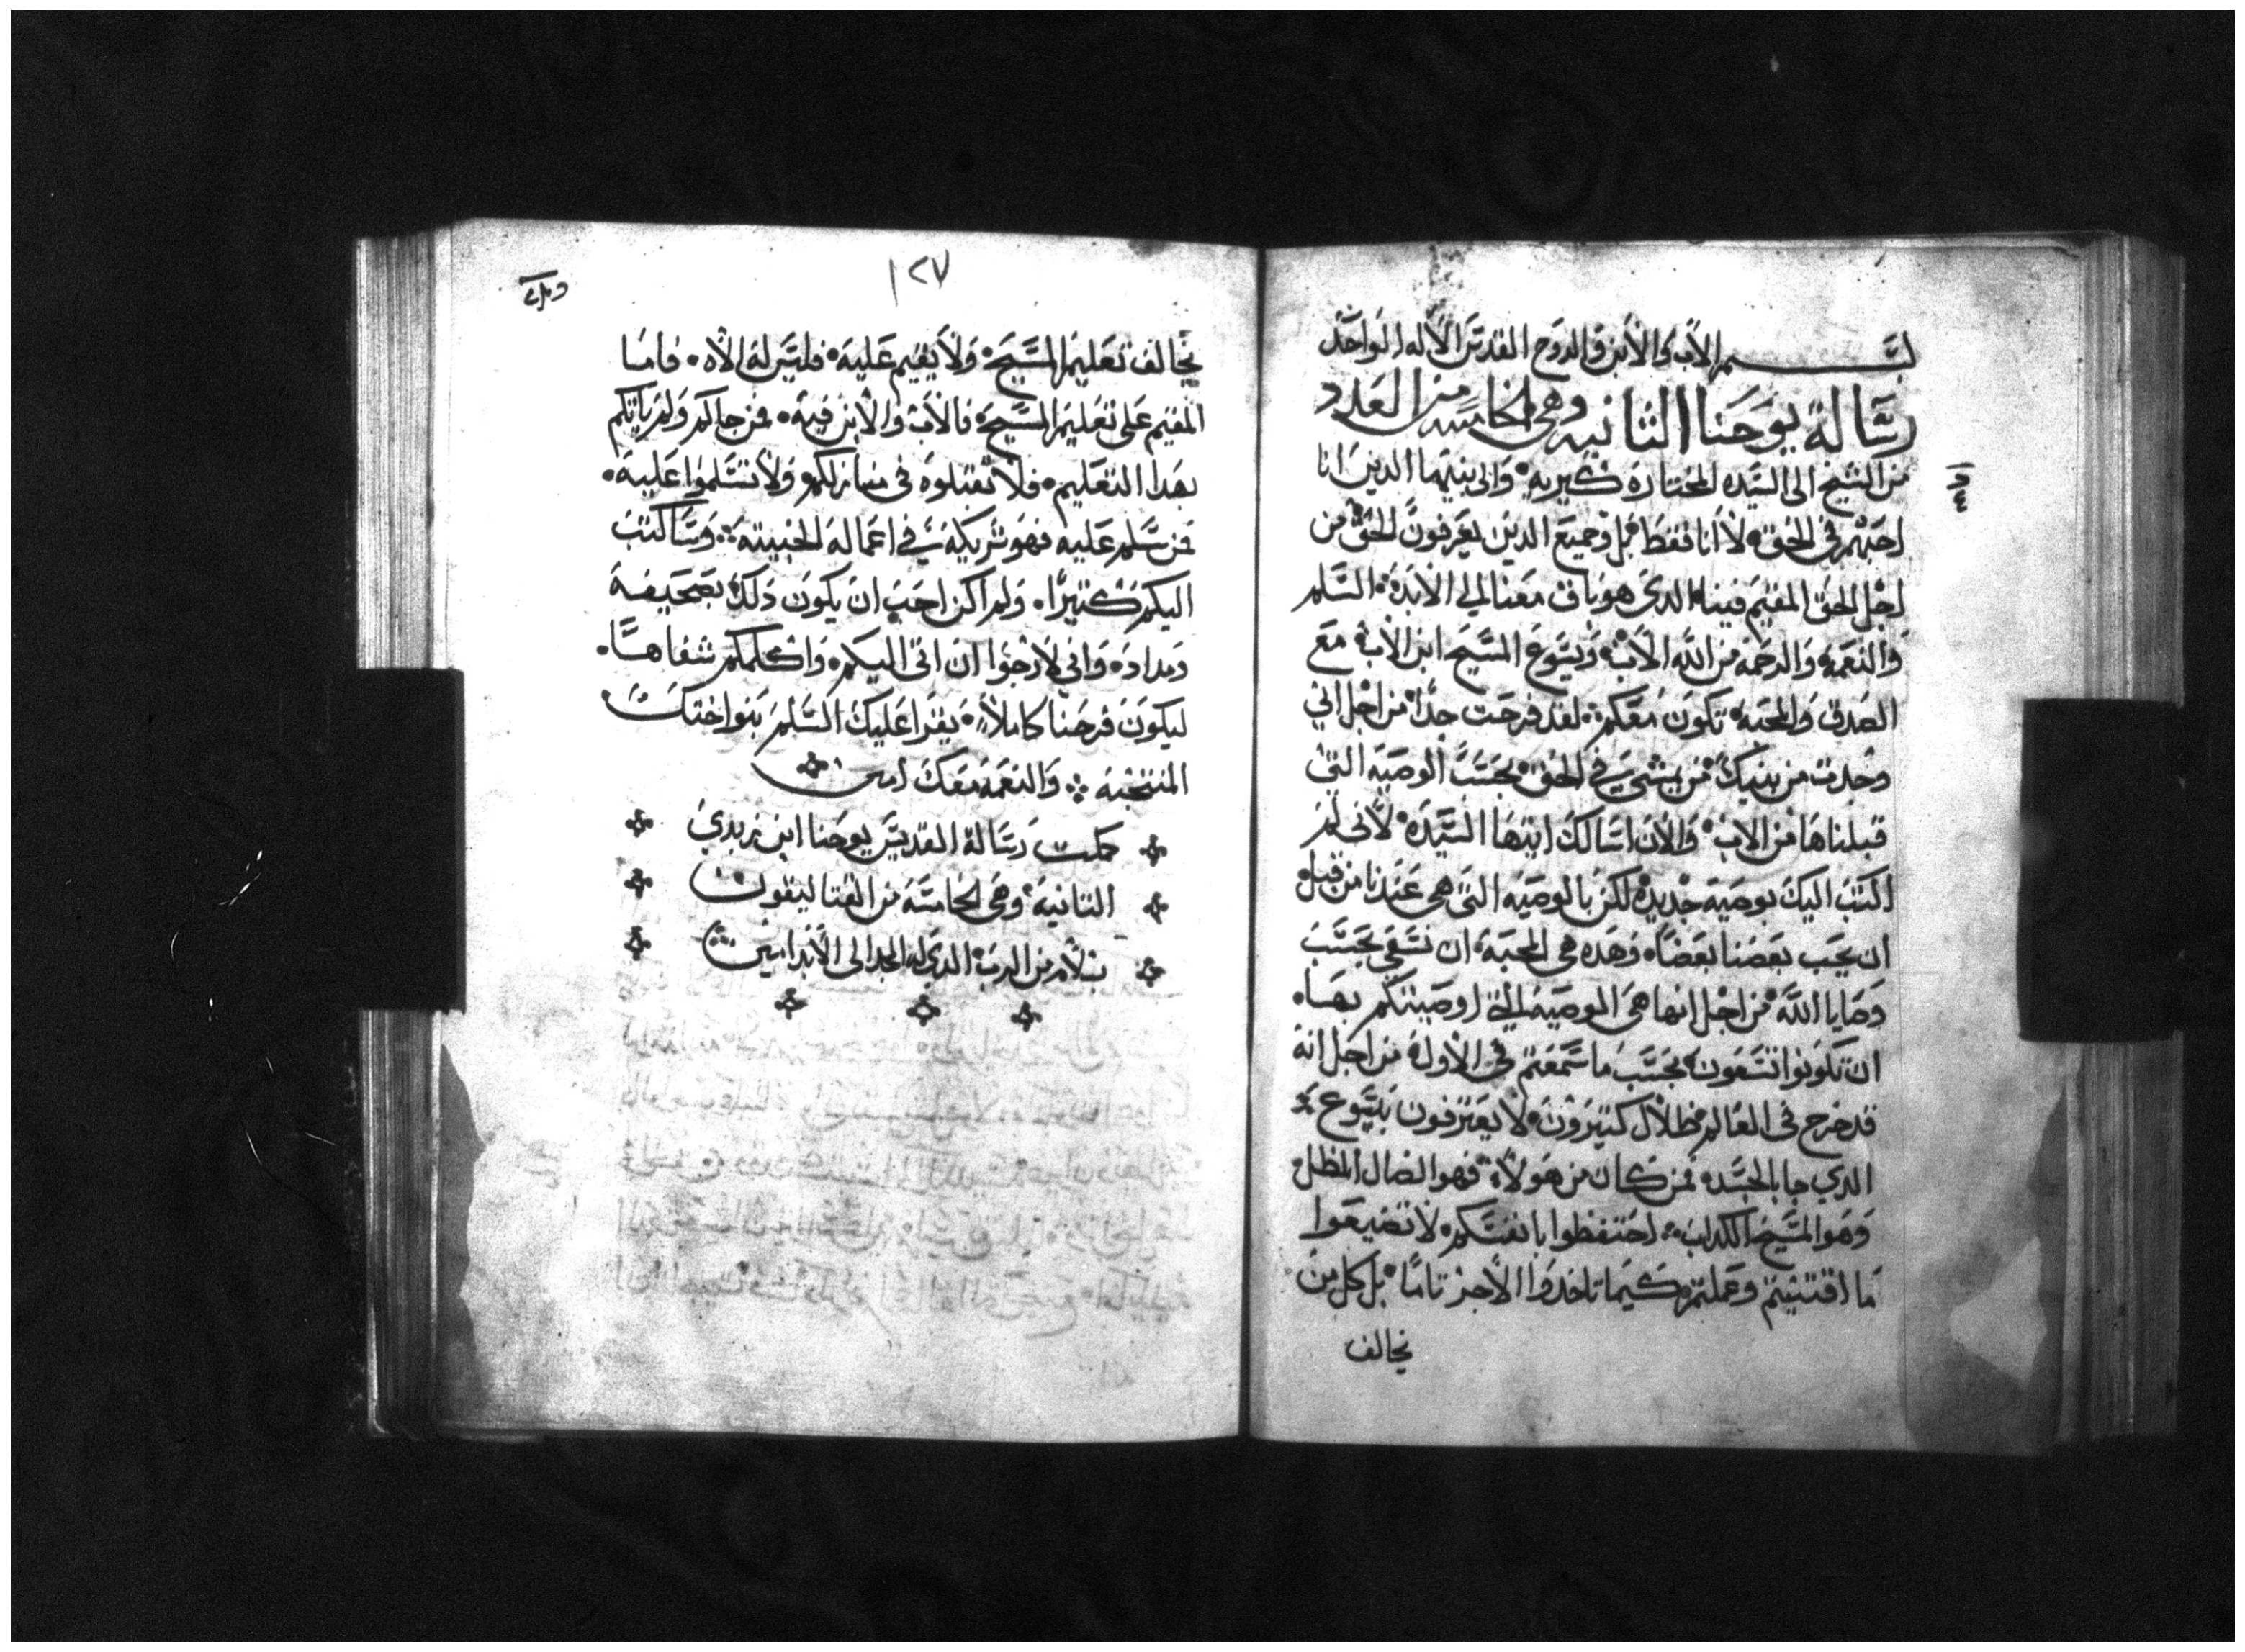 بسم الاب والابن والروح القدس الاله الواحد
رسالة يوحنا الثانيه وهي الخامسه من العدد
من الشيخ الي السيده المختارة كيريه وإلى بنيها الدين انا
احبهم في الحق لا انا فقط بل وجميع الدين يعرفون الحق من
اجل الحق المقيم فينا الدي هو باق معنا الي الابد السلم
والنعمة والرحمة من الله الاب ويسوع المسيح ابن الاب مع
الصدق والمحبة تكون معكم لقد فرحت جدًا من اجل اني
وجدت من بنيك من يمشي في الحق بحسب الوصيه التي
قبلناها من الاب والان اسالك ايتها السيدة لاني لم
اكتب اليك بوصية جديدة لكن بالوصيه التي هي عندنا من قبل
ان يحب بعضنا بعضًا وهده هي المحبة ان نسعي بحسب
وصايا الله من اجل انها هي الوصية التي اوصيتكم بها
ان تكونوا تسعون بحسب ما سمعتم في الاول من اجل انه
قد خرج في العالم مظلال كتيرون لا يعترفون بيسوع
الدي جا بالجسد فمن كان من هولاء فهو الضال المظل
وهو المسيح الكداب احتفظوا بانفسكم لا تضيعوا
ما اقتنيتم وعملتم كيما تاخدوا الاجر تامًا بل كل من
يخالف
١٢٧
يخالف تعليم المسيح ولا يقيم عليه فليس له الاه فاما
المقيم على تعليم المسيح فالاب والابن فيه فمن جاكم ولم ياتكم
بهدا التعليم فلا تقبلوه في منازلكم ولا تسلموا عليه
فمن سلم عليه فهو شريكه في اعماله الخبيثة وساكتب
اليكم كثيرًا ولم اكن احب ان يكون دلك بصحيفة
ومداد واني لارجوا ان اتي اليكم واكلمكم شفاهًا
ليكون فرحنا كاملاً يقرا عليك السلم بنوا اختك
المنتخبة والنعمة معك امين
كملت رسالة القديس يوحنا ابن زبدي
التانية وهي الخامسة من القتاليقون
بسلام من الرب الدي له المجد الى الابد امين